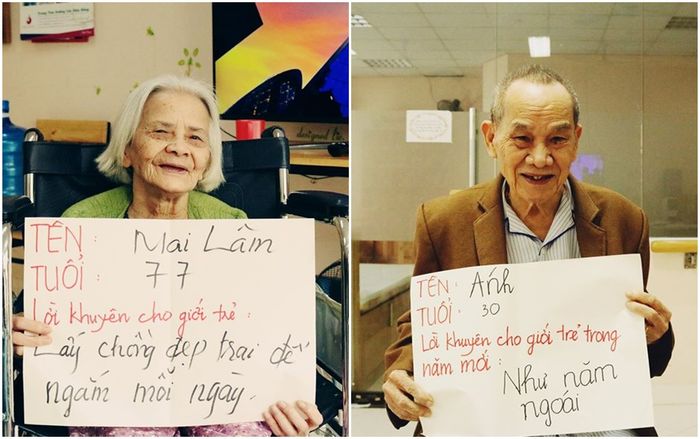 TÊN: Mai Lâm
TUỔI: 77
Lời khuyên cho giới trẻ:
Lấy chồng đẹp trai để
ngắm mỗi ngày.
TÊN: Ánh
TUỔI: 30
Lời khuyên cho giới trẻ trong
năm mới:
Như năm
ngoái